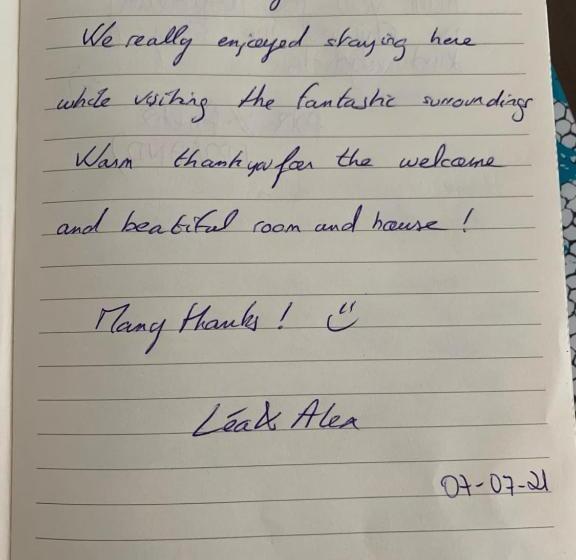 We really enjoyed staying here
while visiting the fantastic surroundings
Warm thank you for the welcome
and beatiful room and house !
Many thanks ! :)
Léa & Alex
07-07-21